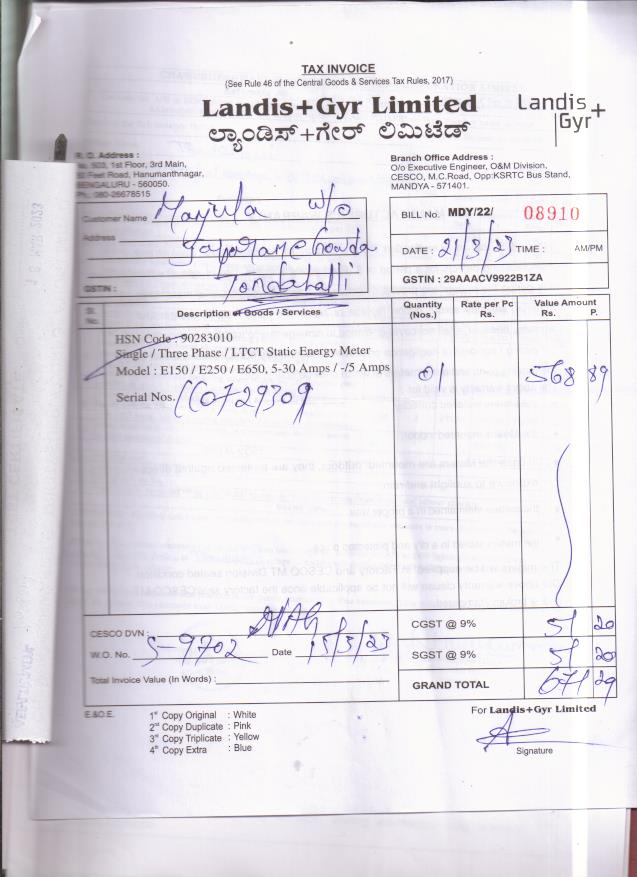 TAX INVOICE
(See Rule 46 of the Central Goods & Services Tax Rules, 2017)
Landis+Gyr Limited
Landis+
Gyr
ಲ್ಯಾಂಡಿಸ್+ಗೇರ್ ಲಿಮಿಟೆಡ್
R. O. Address :
No. 503, 1st Floor, 3rd Main,
Feet Road, Hanumanthnagar,
BENGALURU - 560050.
Ph.: 080-26678515
Branch Office Address :
O/o Executive Engineer, O&M Division,
CESCO, M.C.Road, Opp:KSRTC Bus Stand,
MANDYA - 571401.
Customer Name W/o
Address
GSTIN :
BILL No. MDY/22/ 08910
DATE : 21/3/23 TIME : AM/PM
GSTIN : 29AAACV9922B1ZA
Sl. No. Description of Goods / Services Quantity (Nos.) Rate per Pc Rs. Value Amount Rs. P.
HSN Code : 90283010
Single / Three Phase / LTCT Static Energy Meter
Model : E150 / E250 / E650, 5-30 Amps / -/5 Amps 01 568 89
Serial Nos. CC0729309
CESCO DVN :
W.O. No. S-9702 Date 15/3/23
Total Invoice Value (In Words) :
CGST @ 9% 51 20
SGST @ 9% 51 20
GRAND TOTAL 671 29
E.&O.E.
1st Copy Original : White
2nd Copy Duplicate : Pink
3rd Copy Triplicate : Yellow
4th Copy Extra : Blue
For Landis+Gyr Limited
Signature